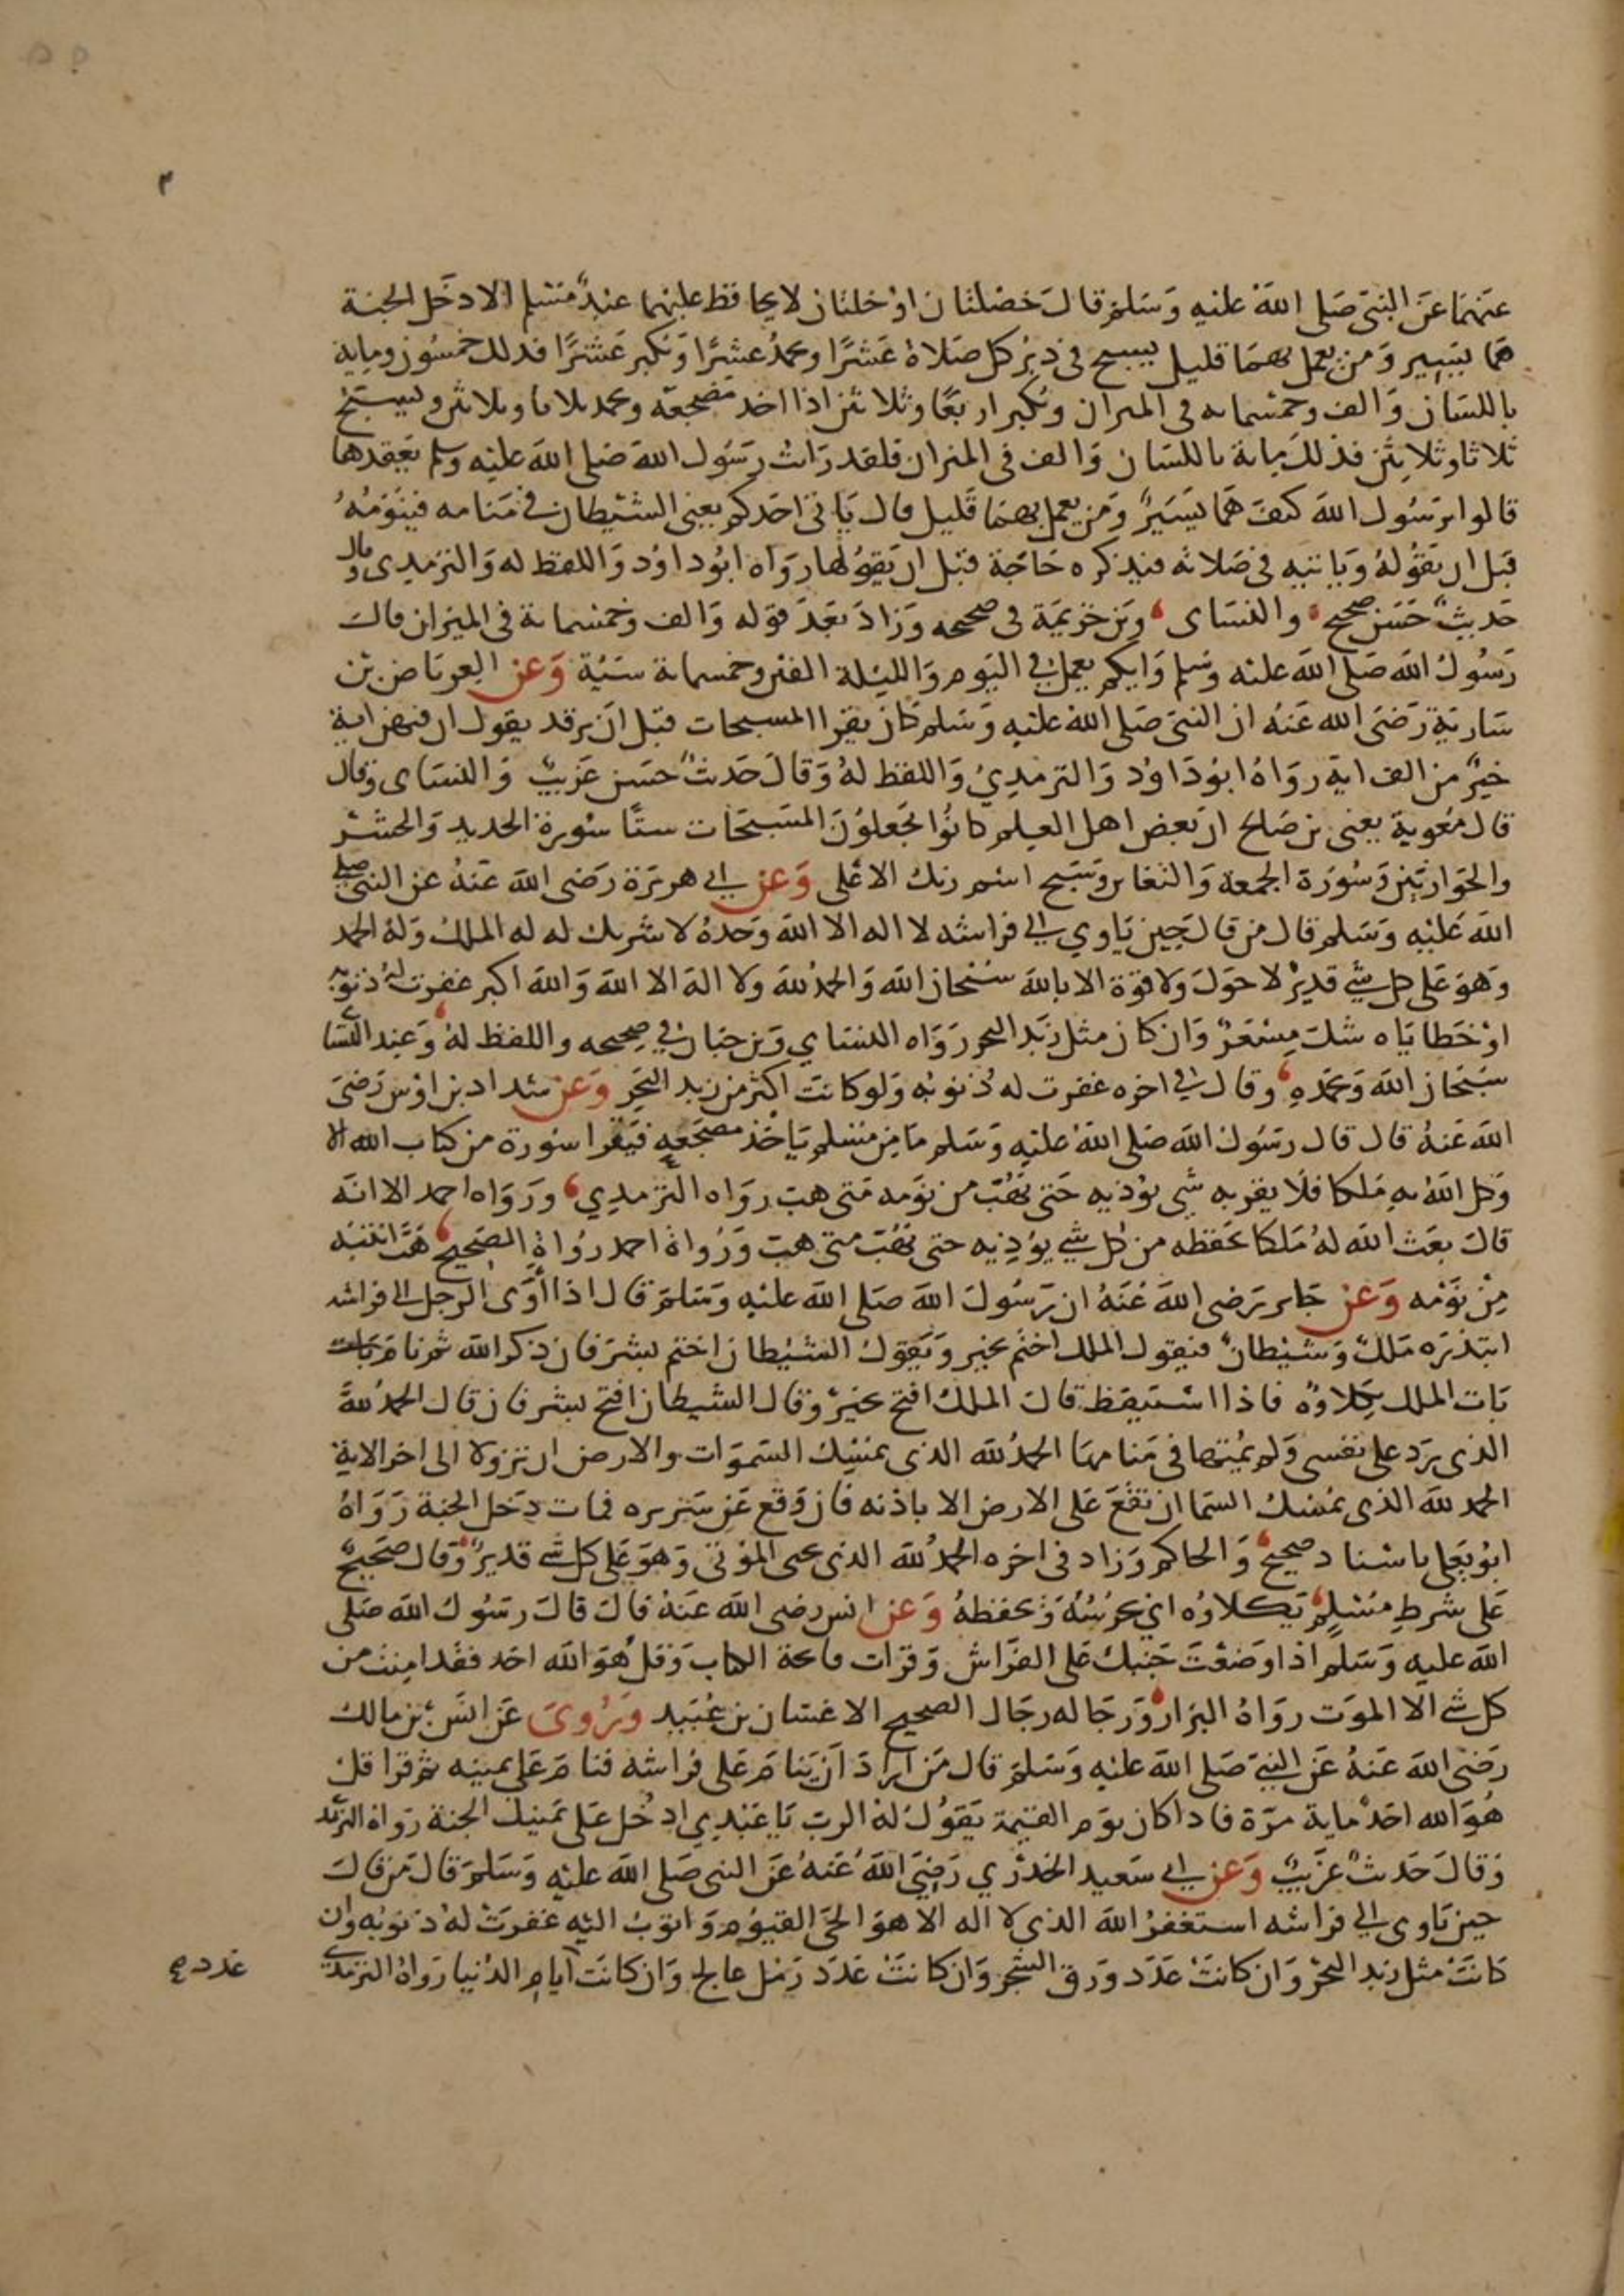 عنهما عن النبي صلى الله عليه وسلم قال خصلتان او خلتان لا يحافظ عليهما عبد مسلم الا دخل الجنة
هما يسير ومن يعمل بهما قليل يسبح في دبر كل صلاة عشرًا ويحمدُ عشرًا ويكبر عشرًا فذلك خمسون وماية
باللسان وألف وخمسماىه فى الميزان ويكبر اربعًا وثلاثين اذا اخد مضجعه ويحمد ثلاثا وثلاثين ويسبح
ثلاثا وثلاثين فذلك ماية باللسان وألف في الميزان فلقد رأيت رسول الله صلى الله عليه وسلم يعقدها
قالوا يرسول الله كيف هما يسيرٌ ومن يعمل بهما قليل قال ياتي احدكم يعني الشيطان في منامه فينومُهُ
قبل ان يقوله وياتيه في صلاته فيذكره حاجة قبل ان يقولها رواه ابو داود واللفظ له والترمذي وقال
حديثٌ حسن صحيح والنساى وبن خزيمة في صحيحه وزاد بعد قوله وألف وخمسماية في الميزان قال
رسول الله صلى الله عليه وسلم وايكم يعمل في اليوم والليلة الفين وخمسماية سيئة وعن العرباض بن
سارية رضي الله عنه ان النبي صلى الله عليه وسلم كان يقرا المسبحات قبل ان يرقد يقول ان فيهن اية
خيرٌ من الف اية رواهُ ابو داود والترمذي واللفظ لهُ وقال حديثٌ حسن غريبٌ والنساى وقال
قال معوية يعني بن صالح ان بعض اهل العلم كانوا يجعلون المسبحات ستًا سورة الحديد والحشر
والحواريين وسورة الجمعة والتغابن وسبح اسم ربك الاعلى وعن ابي هريرة رضى الله عنهُ عن النبي صلى
الله عليه وسلم قال من قال حين ياوي الي فراشه لا اله الا الله وحدهُ لا شريك له له الملك ولهُ الحمد
وهو على كل شي قديرٌ لا حول ولا قوة الا بالله سبحان الله والحمد لله ولا اله الا الله والله اكبر غفرت لهُ ذنوبه
او خطاياه شك مِسْعَرٌ وان كان مثل زبد البحر رواه النساي وبن حبان في صحيحه واللفظ لهُ وعند النسا
سبحان الله وبحمدهِ وقال في اخره غفرت له ذنوبه ولو كانت اكثر من زبد البحر وعن شداد بن اوس رضي
الله عنهُ قال قال رسول الله صلى الله عليه وسلم ما من مسلم ياخذ مضجعه فيقرا سورة من كتاب الله الا
وكل اللهُ به ملكا فلا يقربه شي يوذيه حتى يَهُبّ من نومه متى هب رواه الترمذي ورواه احمد الا انه
قال بعث الله لهُ ملكا يحفظه من كل شي يوذيه حتى يهب متى هب ورُواةُ احمد رُواة الصحيح هَبَّ انتبه
من نومه وعن جابر رضى الله عنهُ ان رسول الله صلى الله عليه وسلم قال اذا أوى الرجل الى فراشه
ابتدره ملكٌ وشيطانٌ فيقول الملك اختم بخير ويقول الشيطان اختم بشر فان ذكر الله ثم نام بات
بات الملك يكلاوه فاذا استيقظ قال الملك افتح بخير وقال الشيطان افتح بشر فان قال الحمدُ لله
الذى يرد على نفسى ولم يمتها في منامها الحمدُ لله الذى يمسك السموات والارض ان تزولا الى اخر الاية
الحمد لله الذى يمسك السما ان تقع على الارض الا باذنه فان وقع عن سريره فمات دخل الجنة رواهُ
ابو يعلى باسناد صحيح والحاكم وزاد في اخره الحمدُ لله الذى يحى الموتى وهو على كل شي قديرٌ وقال صحيحٌ
على شرط مسلم يكلاوه اي يحرسُهُ ويحفظهُ وعن انس رضى الله عنهُ قال قال رسول الله صلى
الله عليه وسلم اذا وضعت جنبك على الفراش وقرات فاتحة الكتاب وقل هو الله احد فقد امنت من
كل شي الا الموت رواهُ البزار ورجاله رجال الصحيح الا غسان بن عُبيد ويُروى عن انس بن مالك
رضي الله عنهُ عن النبي صلى الله عليه وسلم قال من اراد ان ينام على فراشه فنام على يمينه ثم قرا قل
هُو الله احدٌ ماية مرّة فاذا كان يوم القيمة يقول لهُ الرب يا عبدي ادخُل على يمينك الجنة رواه الترمد
وقال حديثٌ غريبٌ وعن ابي سعيد الخدري رضي الله عنهُ عن النبي صلى الله عليه وسلم قال من قال
حين ياوى الي فراشه استغفرُ الله الذى لا اله الا هو الحي القيوم واتوبُ اليه غفرت لهُ ذنوبُه وان
كانت مثل زبد البحر وان كانت عدد ورق الشجر وان كانت عدد رمل عالج وان كانت ايام الدُنيا رواهُ الترمدي